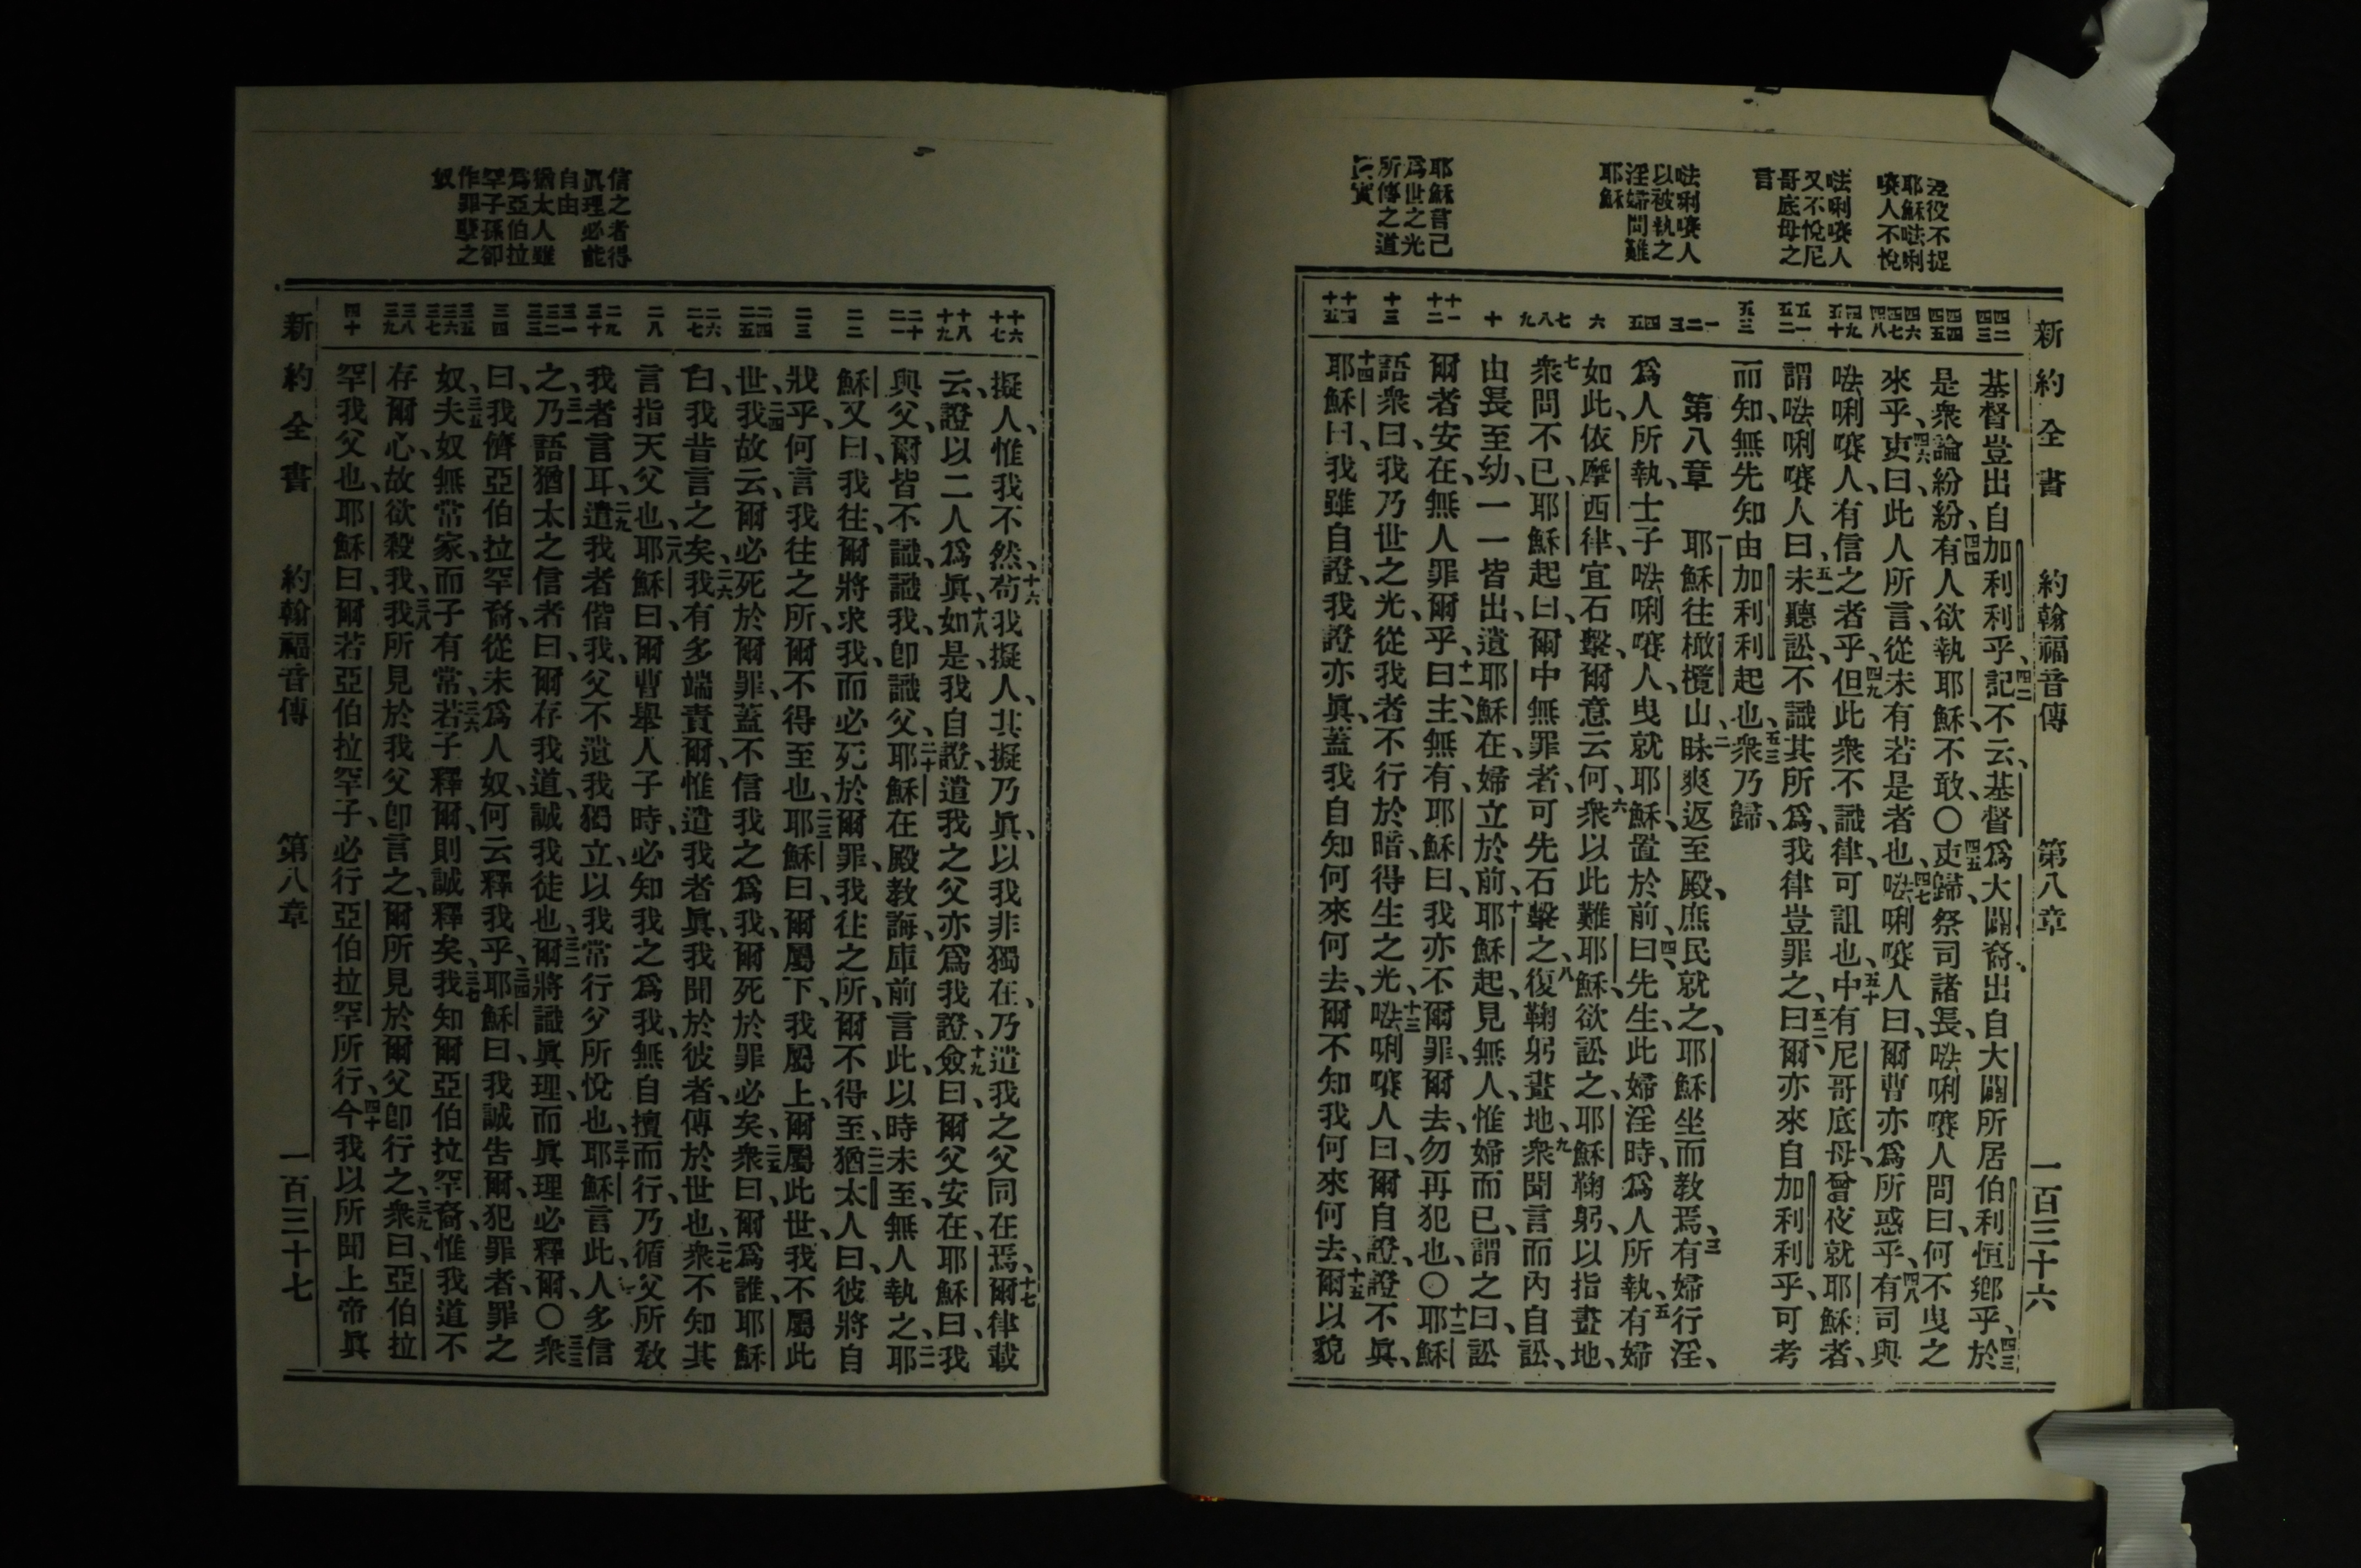 新約全書 約翰福音傳 第八章 一百三十六
役不捉
耶穌𠵽唎
㘔人不悅
𠵽唎㘔人
又不悅尼
哥底母之
言
𠵽唎㘔人
以被執之
淫婦問難
耶穌
耶穌言己
爲世之光
所傳之道
眞實
四二 四三
四四 四五
四六 四七 四八
四九 五十
五一 五二
五三
一 二 三
四 五
六
七 八 九
十
十一 十二
十三
十四 十五
基督豈出自加利利乎、四二記不云、基督爲大闢裔、出自大闢所居伯利恒鄉乎、四三於
是衆論紛紛、四四有人欲執耶穌、不敢、〇四五吏歸、祭司諸長、𠵽唎㘔人問曰、何不曳之
來乎、四六吏曰、此人所言、從未有若是者也、四七𠵽唎㘔人曰、爾曹亦爲所惑乎、四八有司與
𠵽唎㘔人、有信之者乎、四九但此衆不識律、可詛也、五十中有尼哥底母、曾夜就耶穌者、
謂𠵽唎㘔人曰、五一未聽訟、不識其所爲、我律豈罪之、五二曰、爾亦來自加利利乎、可考
而知、無先知由加利利起也、五三衆乃歸、
第八章 一耶穌往橄欖山、二昧爽返至殿、庶民就之、耶穌坐而教焉、三有婦行淫、
爲人所執、士子𠵽唎㘔人、曳就耶穌、置於前、四曰、先生、此婦淫時、爲人所執、五有婦
如此、依摩西律、宜石擊、爾意云何、六衆以此難耶穌、欲訟之、耶穌鞠躬、以指畫地、
七衆問不已、耶穌起曰、爾中無罪者、可先石擊之、八復鞠躬畫地、九衆聞言而內自訟、
由長至幼、一一皆出、遺耶穌在、婦立於前、十耶穌起、見無人、惟婦而已、謂之曰、訟
爾者安在、無人罪爾乎、十一曰、主、無有、耶穌曰、我亦不爾罪、爾去、勿再犯也、〇十二耶穌
語衆曰、我乃世之光、從我者不行於暗、得生之光、十三𠵽唎㘔人曰、爾自證、證不眞、
十四耶穌曰、我雖自證、我證亦眞、蓋我自知何來何去、爾不知我何來何去、十五爾以貌
十六 十七
十八 十九
二十 二一
二二
二三
二四 二五
二六 二七
二八
二九 三十
三一 三二 三三
三四
三五 三六 三七
三八 三九
四十
擬人、惟我不然、十六苟我擬人、其擬乃眞、以我非獨在、乃遣我之父同在焉、十七爾律載
云、證以二人爲眞、十八如是、我自證、遣我之父亦爲我證、十九僉曰、爾父安在、耶穌曰、我
與父、爾皆不識、識我、卽識父、二十耶穌在殿教誨、庫前言此、以時未至、無人執之、二一耶
穌又曰、我往、爾將求我、而必死於爾罪、我往之所、爾不得至、二二猶太人曰、彼將自
戕乎、何言我往之所、爾不得至也、二三耶穌曰、爾屬下、我屬上、爾屬此世、我不屬此
世、二四我故云、爾必死於爾罪、蓋不信我之爲我、爾死於罪必矣、二五衆曰、爾爲誰、耶穌
曰、我昔言之矣、二六我有多端責爾、惟遣我者眞、我聞於彼者、傳於世也、二七衆不知其
言指天父也、二八耶穌曰、爾曹舉人子時、必知我之爲我、無自擅而行、乃循父所教
我者言耳、二九遣我者偕我、父不遺我獨立、以我常行父所悅也、三十耶穌言此、人多信
之、三一乃語猶太之信者曰、爾存我道、誠我徒也、三二爾將識眞理、而眞理必釋爾、〇三三衆
曰、我儕亞伯拉罕裔、從未爲人奴、何云釋我乎、三四耶穌曰、我誠告爾、犯罪者、罪之
奴、三五夫奴無常家、而子有常、三六若子釋爾、則誠釋矣、三七我知爾亞伯拉罕裔、惟我道不
存爾心、故欲殺我、三八我所見於我父卽言之、爾所見於爾父卽行之、三九衆曰、亞伯拉
罕我父也、耶穌曰、爾若亞伯拉罕子、必行亞伯拉罕所行、四十今我以所聞上帝眞
信之者得
眞理必能
自由
猶太人雖
爲亞伯拉
罕子孫卻
作罪孽之
奴
新約全書 約翰福音傳 第八章 一百三十七